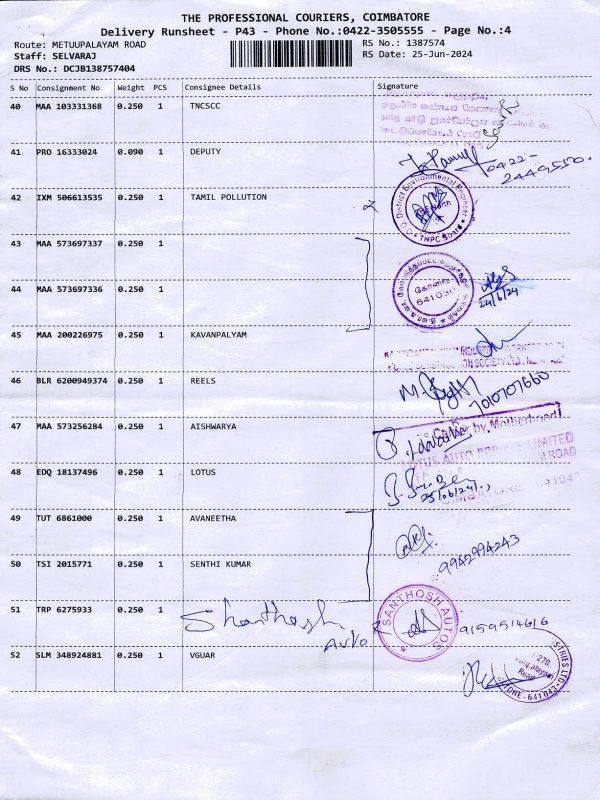 THE PROFESSIONAL COURIERS, COIMBATORE
Delivery Runsheet - P43 - Phone No.:0422-3505555 - Page No.:4
Route: METUUPALAYAM ROAD
RS No.: 1387574
Staff: SELVARAJ
RS Date: 25-Jun-2024
DRS No.: DCJB138757404
S No Consignment No Weight PCS Consignee Details Signature
40 MAA 103331368 0.250 1 TNCSCC
41 PRO 16333024 0.090 1 DEPUTY
0422-
2449550.
42 IXM 506613535 0.250 1 TAMIL POLLUTION
District Environmental Engineer
TNPC Board
43 MAA 573697337 0.250 1
44 MAA 573697336 0.250 1
கோவை
641030
24/6/24
45 MAA 200226975 0.250 1 KAVANPALYAM
46 BLR 6200949374 0.250 1 REELS
7010707660
47 MAA 573256284 0.250 1 AISHWARYA
by Motherhood
LOTUS AUTO LIMITED
ROAD
48 EDQ 18137496 0.250 1 LOTUS
25/06/24
49 TUT 6861000 0.250 1 AVANEETHA
9942994243
50 TSI 2015771 0.250 1 SENTHI KUMAR
51 TRP 6275933 0.250 1 Shanthosh
Auto
SANTHOSH AUTOS
9159514616
52 SLM 348924881 0.250 1 VGUAR
270,
Road
641043